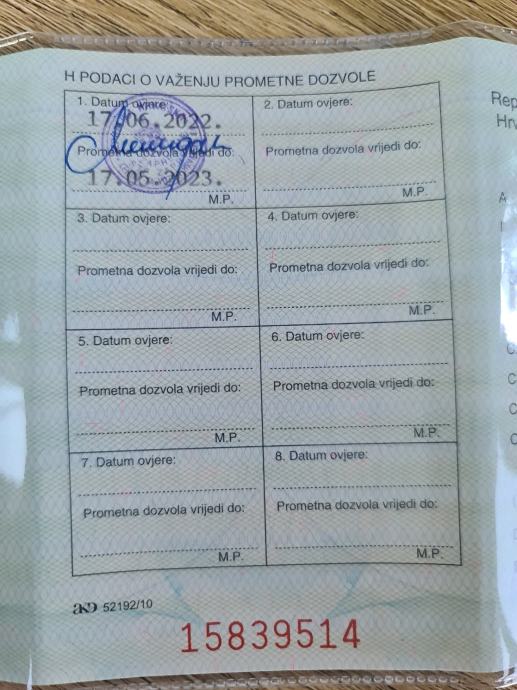 H PODACI O VAŽENJU PROMETNE DOZVOLE
1. Datum ovjere:
17.06.2022.
Prometna dozvola vrijedi do:
17.05.2023.
M.P.
2. Datum ovjere:
Prometna dozvola vrijedi do:
M.P.
3. Datum ovjere:
Prometna dozvola vrijedi do:
M.P.
4. Datum ovjere:
Prometna dozvola vrijedi do:
M.P.
5. Datum ovjere:
Prometna dozvola vrijedi do:
M.P.
6. Datum ovjere:
Prometna dozvola vrijedi do:
M.P.
7. Datum ovjere:
Prometna dozvola vrijedi do:
M.P.
8. Datum ovjere:
Prometna dozvola vrijedi do:
M.P.
52192/10
15839514